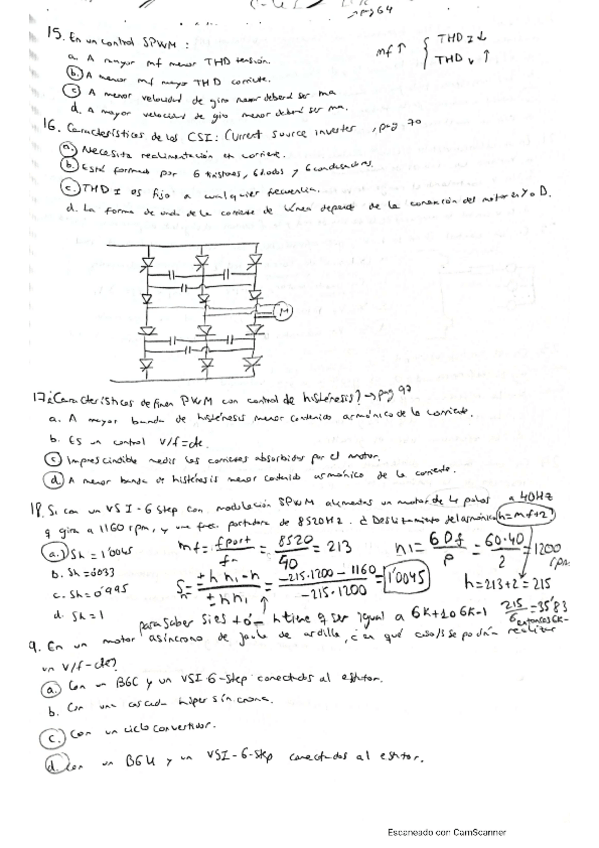 →pag 64
15. En un control SPWM :
a. A mayor mf menor THD tensión.
b. A menor mf mayo THD corriente.
c. A menor velocidad de giro menor deberá ser ma
d. A mayor velocidad de giro menor deberá ser ma.
mf↑ { THD I ↓
THD v ↑
16. Características de los CSI: Current source inverter , pag 70
a. Necesita realimentación en corriente.
b. Está formado por 6 tiristores, 6 diodos y 6 condensadores.
c. THD I es fijo a cualquier frecuencia.
d. La forma de onda de la corriente de línea depende de la conexión del motor en Y o D.
M
17. ¿Características definen PWM con control de histéresis? → pag 92
a. A mayor banda de histéresis menor contenido armónico de la corriente.
b. Es un control V/f=cte.
c. Imprescindible medir las corrientes absorbidas por el motor.
d. A menor banda de histéresis menor contenido armónico de la corriente.
18. Si con un VSI-6 step con modulación SPWM alimentas un motor de 4 polos a 40Hz
q gira a 1160 rpm, y una frec. portadora de 8520Hz. ¿Deslizamiento del armónico h=mf+2?
a. Sh = 1'0045
b. Sh=0'033
c. Sh=0'995
d. Sh=1
mf = fport/fn = 8520/40 = 213
n1 = 60f/p = 60·40/2 = 1200 rpm
Sn = (±h n1 - n)/(±h n1) = (-215·1200 - 1160)/(-215·1200) = 1'0045
h=213+2=215
para saber si es + ó - h tiene q ser igual a 6k+1 o 6k-1 215/6=35'83 entonces 6k-
9. En un motor asíncrono de jaula de ardilla, ¿en qué caso/s se podrán realizar
un V/f-cte?
a. Con un BGC y un VSI-6-step conectados al estator.
b. Con una cascada hipersíncrona.
c. Con un cicloconvertidor.
d. Con un BGU y un VSI-6-step conectados al estator.
Escaneado con CamScanner